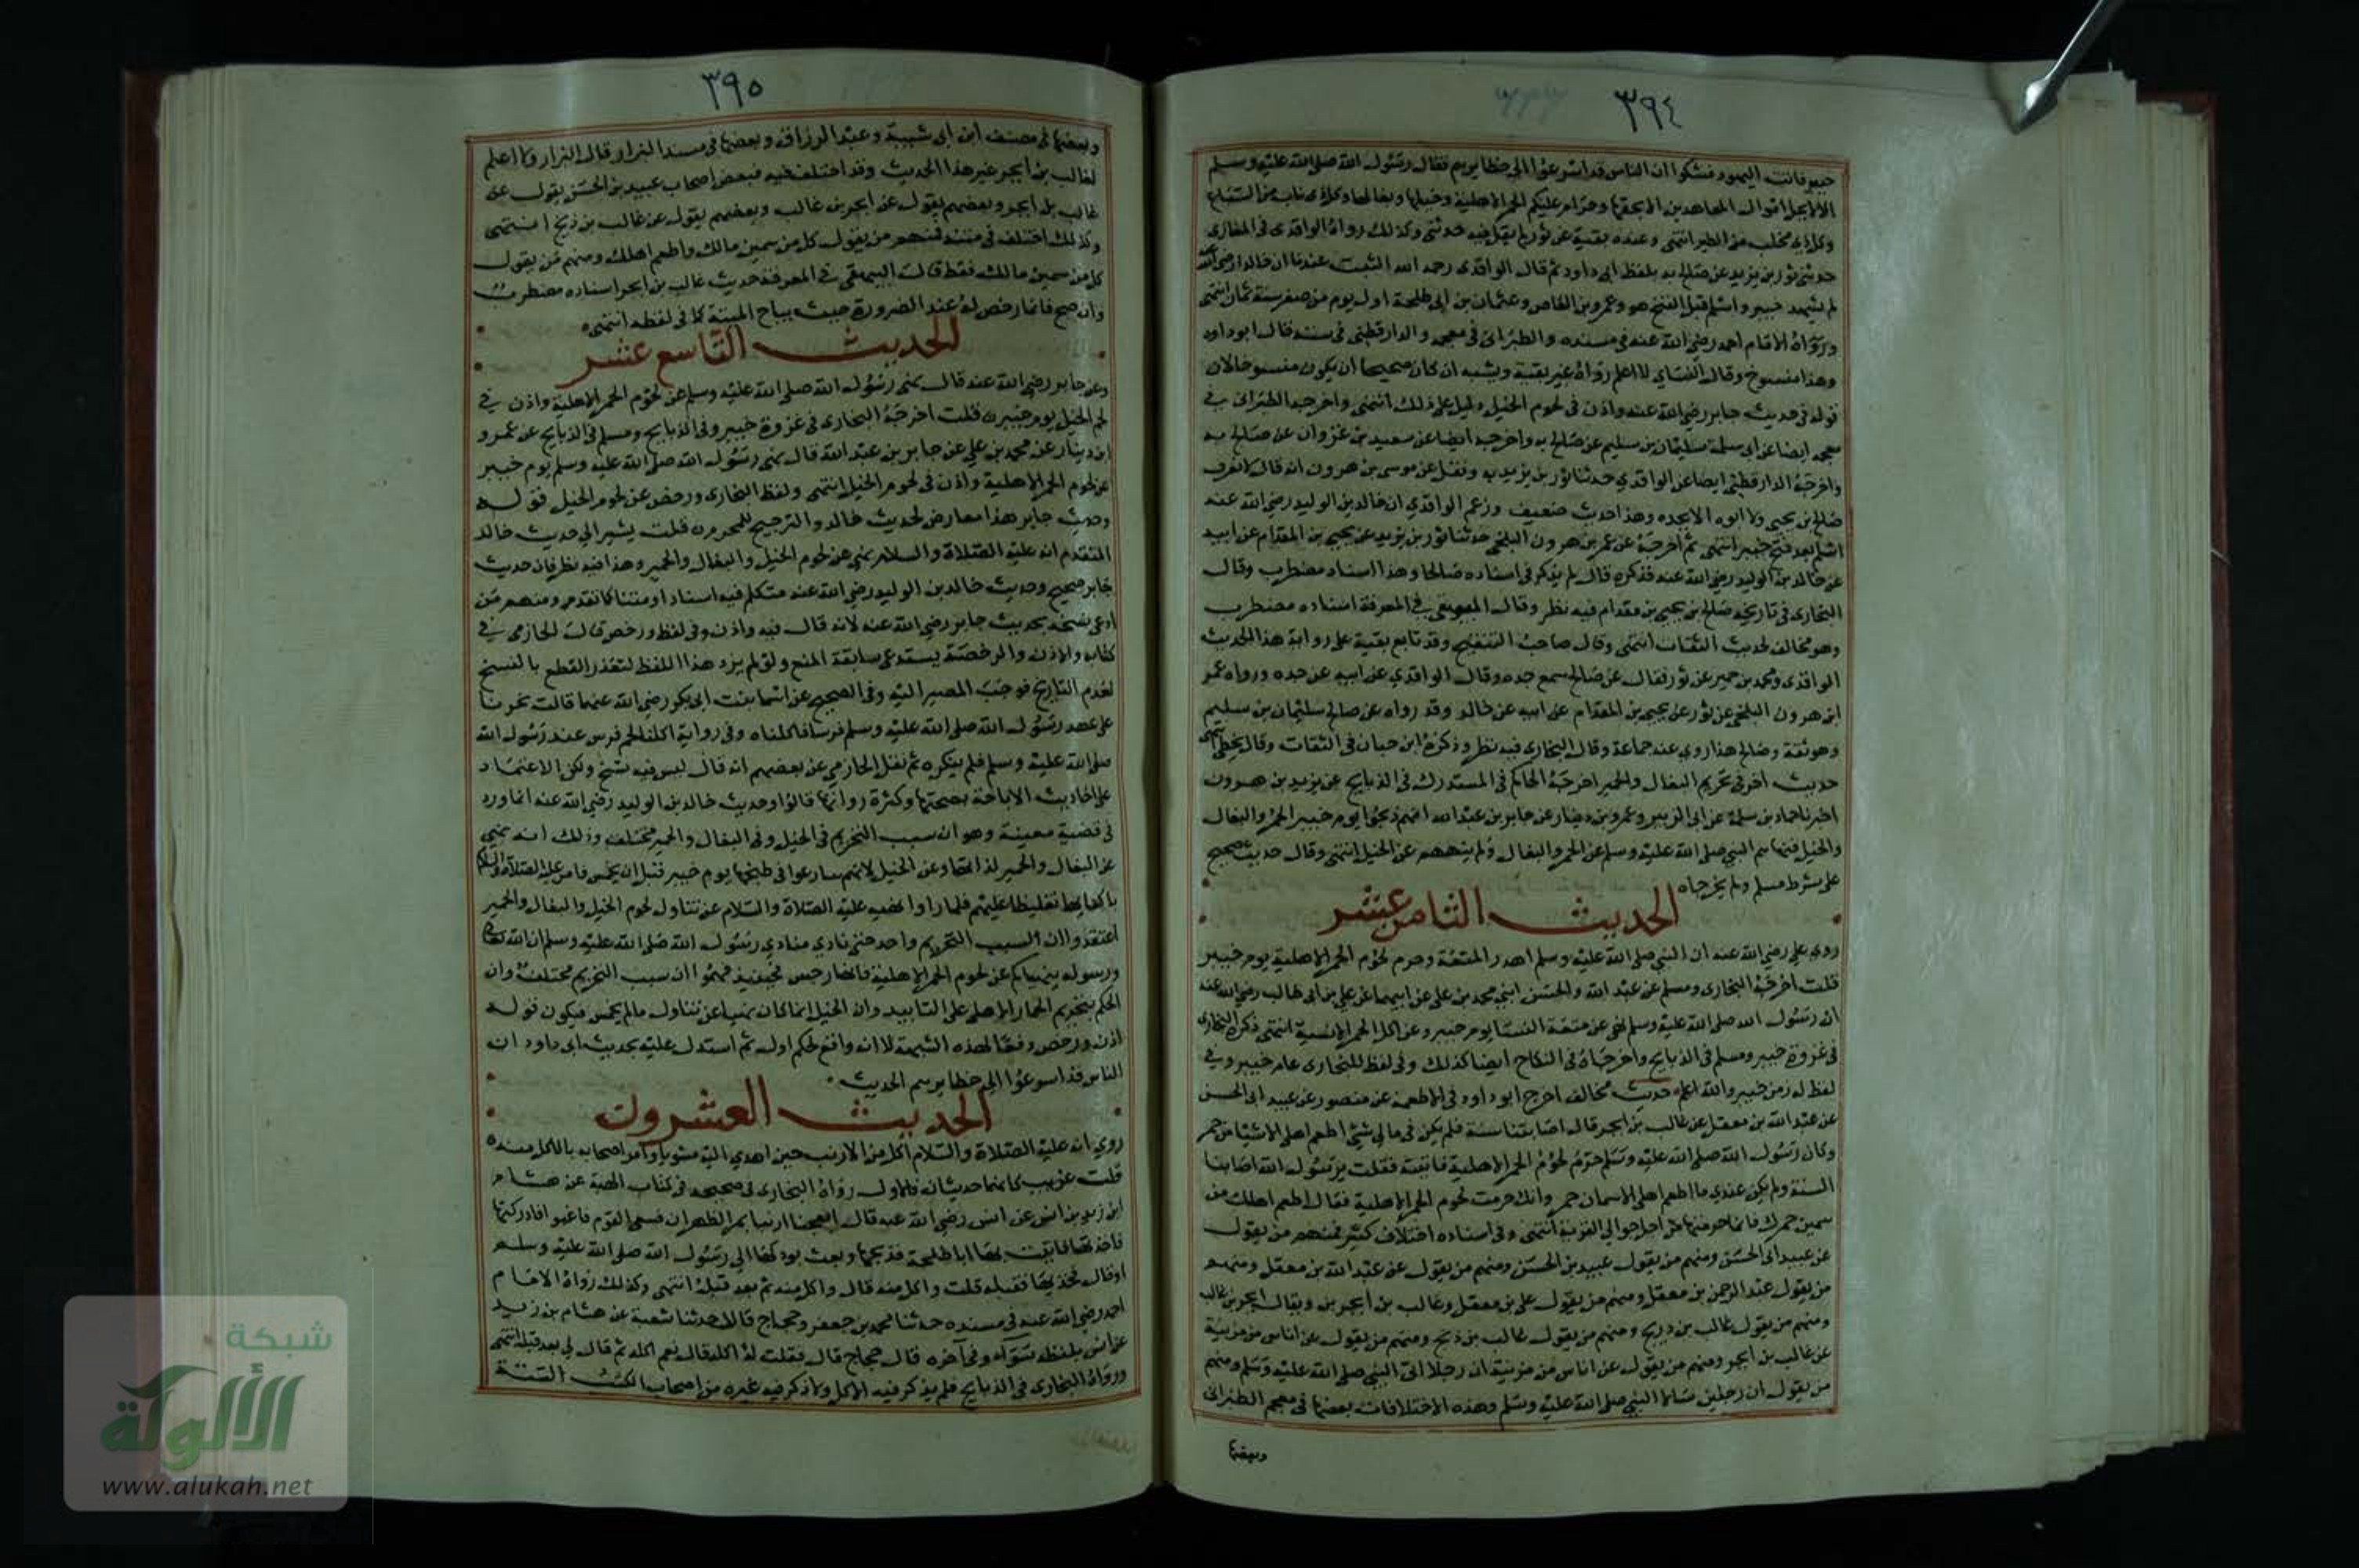 ٣٩٤
خيبر فاتت اليهود فشكوا ان الناس قد اسرعوا الى حظايرهم فقال رسول الله صلى الله عليه وسلم
الا لا يحل اموال المعاهدين الا بحقها وحرام عليكم الحمر الاهلية وخيلها وبغالها وكل ذى ناب من السباع
وكل ذى مخلب من الطير انتهى وعنده بقية عن ثور لم يقل فيه حدثنى وكذلك رواه الواقدى فى المغازى
حدثنى ثور بن يزيد عن صالح به بلفظ ابى داود ثم قال الواقدى رحمه الله الثبت عندنا ان خالدا رضى الله عنه
لم يشهد خيبر واسلم قبل الفتح هو وعمرو بن العاص وعثمان بن ابى طلحة اول يوم من صفر سنة ثمان انتهى
ورواه الامام احمد رضى الله عنه فى مسنده والطبرانى فى معجمه والدارقطنى فى سننه قال ابو داود
وهذا منسوخ وقال النساى لا اعلم رواه غير بقية ويشبه ان كان صحيحا ان يكون منسوخا لان
قوله فى حديث جابر رضى الله عنه واذن فى لحوم الخيل دليل على ذلك انتهى واخرجه الطبرانى فى
معجمه ايضا عن ابى سلمة سليمان بن سليم عن صالح به واخرجه ايضا عن سعيد بن غزوان عن صالح به
واخرجه الدارقطنى ايضا عن الواقدي حدثنا ثور بن يزيد به ونقل عن موسى بن هرون انه قال لا نعرف
صالح بن يحيى ولا ابوه الا بجده وهذا حديث ضعيف وزعم الواقدي ان خالد بن الوليد رضى الله عنه
اسلم بعد فتح خيبر انتهى ثم اخرجه عن عمر بن هرون البلخى حدثنا ثور بن يزيد عن يحيى بن المقدام عن ابيه
عن خالد بن الوليد رضى الله عنه فذكره قال لم يذكر فى اسناده صالحا وهذا اسناد مضطرب وقال
البخارى فى تاريخه صالح بن يحيى بن مقدام فيه نظر وقال البيهقى فى المعرفة اسناده مضطرب
وهو مخالف لحديث الثقات انتهى وقال صاحب التنقيح وقد تابع بقية على رواية هذا الحديث
الواقدى ومحمد بن حمير عن ثور فقال عن صالح سمع جده وقال الواقدي عن ابيه عن جده ورواه عمر
ابن هرون البلخى عن ثور عن يحيى بن المقدام عن ابيه عن خالد وقد رواه عن صالح سليمان بن سليم
وهو ثقة وصالح هذا روي عنه جماعة وقال البخارى فيه نظر وذكره ابن حبان فى الثقات وقال يخطى انتهى
حديث اخر فى تحريم البغال والحمير اخرجه الحاكم فى المستدرك فى الذبايح عن يزيد بن هرون
اخبرنا حماد بن سلمة عن ابى الزبير وعمرو بن دينار عن جابر بن عبد الله انهم ذبحوا يوم خيبر الحمر والبغال
والخيل فنهاهم النبى صلى الله عليه وسلم عن الحمر والبغال ولم ينههم عن الخيل انتهى وقال حديث صحيح
على شرط مسلم ولم يخرجاه
الحديث الثامن عشر
روى على رضى الله عنه ان النبى صلى الله عليه وسلم اهدر المتعة وحرم لحوم الحمر الاهلية يوم خيبر
قلت اخرجه البخارى ومسلم عن عبد الله والحسن ابنى محمد بن على عن ابيهما عن على بن ابى طالب رضى الله عنه
ان رسول الله صلى الله عليه وسلم نهى عن متعة النسا يوم خيبر وعن اكل الحمر الانسية انتهى ذكره البخارى
فى غزوة خيبر ومسلم فى الذبايح واخرجاه فى النكاح ايضا كذلك وفى لفظ للبخارى عام خيبر وفى
لفظ له زمن خيبر والله اعلم حديث مخالف اخرج ابو داود فى الاطعمة عن منصور عن عبيد ابى الحسن
عن عبد الله بن معقل عن غالب بن ابجر قال اصابتنا سنة فلم يكن فى مالى شئ اطعم اهلى الا شيا من حمر
وكان رسول الله صلى الله عليه وسلم حرم لحوم الحمر الاهلية فاتيته فقلت يرسول الله اصابنا
السنة ولم يكن عندي ما اطعم اهلى الا سمان حمر وانك حرمت لحوم الحمر الاهلية فقال اطعم اهلك من
سمين حمرك فانما حرمتها من اجل جوال القرية انتهى وفى اسناده اختلاف كثير فمنهم من يقول
عن عبيد ابى الحسن ومنهم من يقول عبيد بن الحسن ومنهم من يقول عن عبد الله بن معقل ومنهم
من يقول عبد الرحمن بن معقل ومنهم من يقول على بن معقل وغالب بن ابجر بن ويقال ابجر بن غالب
ومنهم من يقول غالب بن دريج ومنهم من يقول غالب بن ذيخ ومنهم من يقول عن اناس من مزينة
عن غالب بن ابجر ومنهم من يقول عن اناس من مزينة ان رجلا اتى النبى صلى الله عليه وسلم ومنهم
من يقول ان رجلين سالا النبى صلى الله عليه وسلم وهذه الاختلافات بعضها فى معجم الطبرانى
وبعضها
٣٩٥
وبعضها فى مصنف ابن ابى شيبة وعبد الرزاق وبعضها فى مسند البزار قال البزار ولا اعلم
لغالب بن ابجر غير هذا الحديث وقد اختلف فيه فبعض اصحاب عبيد بن الحسن يقول عن
غالب بن ابجر وبعضهم يقول عن ابجر بن غالب وبعضهم يقول عن غالب بن ذيخ انتهى
وكذلك اختلف فى متنه فمنهم من يقول كل من سمين مالك واطعم اهلك ومنهم من يقول
كل من سمين مالك فقط قال البيهقى فى المعرفة حديث غالب بن ابجر اسناده مضطرب
وان صح فانما رخص له عند الضرورة حيث يباح الميتة كما فى لفظه انتهى
الحديث التاسع عشر
وعن جابر رضى الله عنه قال نهى رسول الله صلى الله عليه وسلم عن لحوم الحمر الاهلية واذن فى
لحم الخيل يوم خيبر قلت اخرجه البخارى فى غزوة خيبر وفى الذبايح ومسلم فى الذبايح عن عمرو
ابن دينار عن محمد بن على عن جابر بن عبد الله قال نهى رسول الله صلى الله عليه وسلم يوم خيبر
عن لحوم الحمر الاهلية واذن فى لحوم الخيل انتهى ولفظ البخارى ورخص عن لحوم الخيل قوله
وحديث جابر هذا معارض لحديث خالد والترجيح للمحرم قلت يشير الى حديث خالد
المتقدم انه عليه الصلاة والسلام نهى عن لحوم الخيل والبغال والحمير وهذا فيه نظر فان حديث
جابر صحيح وحديث خالد بن الوليد رضى الله عنه متكلم فيه اسنادا ومتنا كما تقدم ومنهم من
ادعى نسخه بحديث جابر رضى الله عنه لانه قال فيه واذن وفى لفظ ورخص قال الحازمى فى
كتابه والاذن والرخصة يستدعى سابقة المنع ولو لم يرد هذا اللفظ لتعذر القطع بالنسخ
لعدم التاريخ فوجب المصير اليه وفى الصحيح عن اسما بنت ابى بكر رضى الله عنهما قالت نحرنا
على عهد رسول الله صلى الله عليه وسلم فرسا فاكلناه وفى رواية اكلنا لحم فرس عند رسول الله
صلى الله عليه وسلم فلم ينكره ثم نقل الحازمى عن بعضهم انه قال ليس فيه نسخ ولكن الاعتماد
على احاديث الاباحة بصحتها وكثرة رواتها قالوا وحديث خالد بن الوليد رضى الله عنه انما ورد
فى قضية معينة وهو ان سبب التحريم فى الخيل وفى البغال والحمير مختلف وذلك انه نهى
عن البغال والحمير لذاتها وعن الخيل لانهم سارعوا فى طبخها يوم خيبر قبل ان يخمس فامر عليه الصلاة والسلام
باكفايها تغليظا عليهم فلما راوا نهيه عليه الصلاة والسلام عن تناول لحوم الخيل والبغال والحمير
اعتقدوا ان السبب التحريم واحد حتى نادي منادي رسول الله صلى الله عليه وسلم ان الله تعالى
ورسوله ينهيانكم عن لحوم الحمر الاهلية فانها رجس فحينيذ فهموا ان سبب التحريم مختلف وان
الحكم بتحريم الحمار الاهلى على التابيد وان الخيل انما كان نهيا عن تناول مالم يخمس فيكون قوله
اذن ورخص دفعا لهذه الشبهة لا انه وافع لحكم اول ثم استدل عليه بحديث ابى داود ان
الناس قد اسرعوا الى حظايرهم الحديث
الحديث العشرون
روي انه عليه الصلاة والسلام اكل من الارنب حين اهدي اليه مشويا وامر اصحابه بالاكل منه
قلت غريب كانهما حديثان فالاول رواه البخارى فى صحيحه فى كتاب الهبة عن هشام
ابن زيد بن انس عن انس رضى الله عنه قال انفجنا ارنبا بمر الظهران فسعى القوم فلغبوا فادركتها
فاخذتها فاتيت بها ابا طلحة فذبحها وبعث بوركها الى رسول الله صلى الله عليه وسلم
او قال فخذيها فقبله قلت واكل منه قال واكل منه ثم بعد قبله انتهى وكذلك رواه الامام
احمد رضى الله عنه فى مسنده حدثنا محمد بن جعفر وحجاج قالا حدثنا شعبة عن هشام بن زيد
عن انس بلفظه سوآء وفى آخره قال حجاج قال فقلت له اكله قال نعم اكله ثم قال لى بعد قبله انتهى
ورواه البخارى فى الذبايح فلم يذكر فيه الاكل ولا ذكر فيه غيره من اصحاب الكتب الستة
شبكة
الألوكة
www.alukah.net